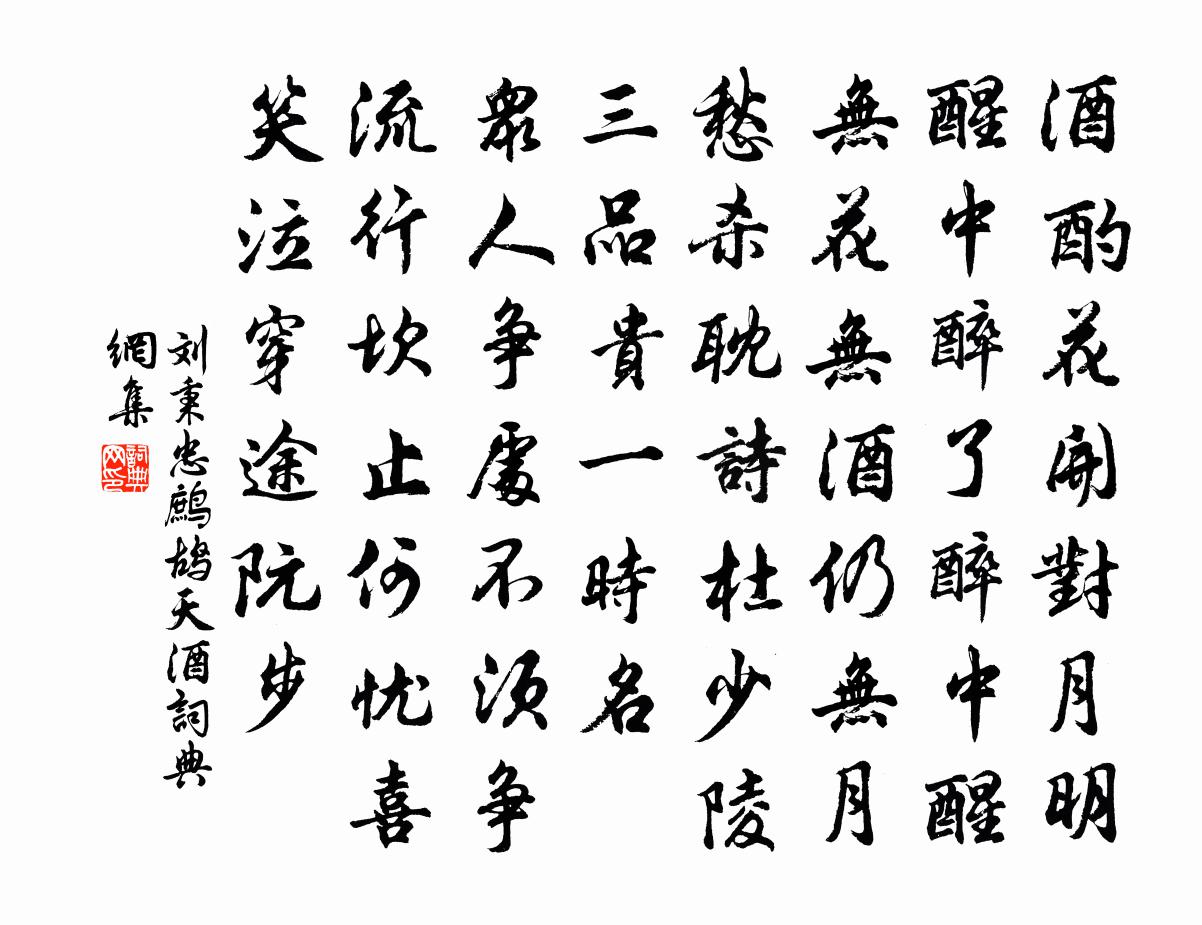 酒酌花開對月明
醒中醉了醉中醒
無花無酒仍無月
愁杀耽詩杜少陵
三品貴一時名
衆人争處不須争
流行坎止何忧喜
笑泣穿途阮步
刘秉忠鷓鴣天酒詞典
網集
詞典
网印